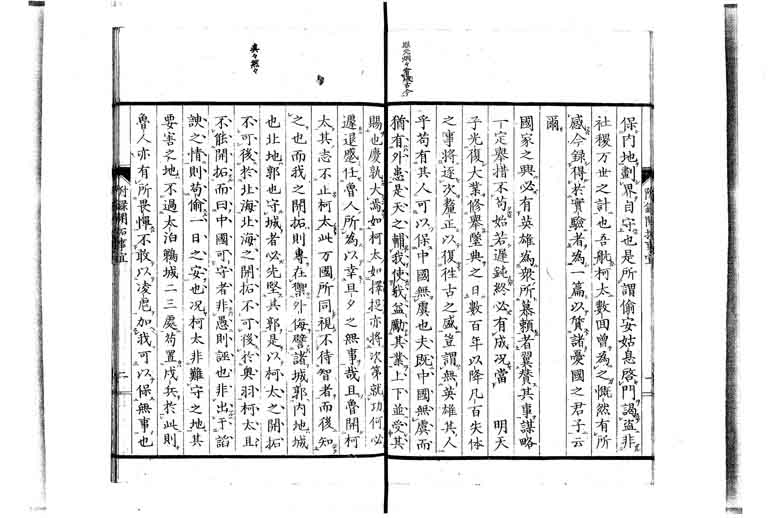 保内地劃界自守也是所謂偷安姑息啓門謁盜非
社稷万世之計也吾航柯太數回曽為之慨然有所
感今録得於實驗者為一篇以質諸憂國之君子云
爾
國家之興必有英雄為衆所慕頼者翼賛其事謀略
一定舉措不苟始若遲鈍終必有成况當　明天
子光復大業修舉墜典之日數百年以降几百失体
之事將逐次釐正以復徃古之盛豈謂無英雄其人
乎苟有其人可以保中國無虞也夫既中國無虞而
猶有外患是天之輔我使我益勵其業上下並受其
賜也慶孰大焉如柯太如擇捉亦將次第就功何必
遲退蹙住魯人所為以幸旦夕之無事哉且魯開柯
太其志不止柯太此万國所同視不待智者而後知
之也而我之開拓則專在禦外侮譬諸城郭内地城
也北地郭也守城者必先堅其郭是以柯太之開拓
不可後於北海北海之開拓不可後於奥羽柯太且
不能開拓而曰中國可守者非愚則誣也非出于諂
諛之情則苟偷一日之安也况柯太非難守之地其
要害之地不過太泊鵜城二三處苟置戍兵於此則
魯人亦有所畏憚不敢以凌虐加我可以保無事也
附録開拓事宜
二